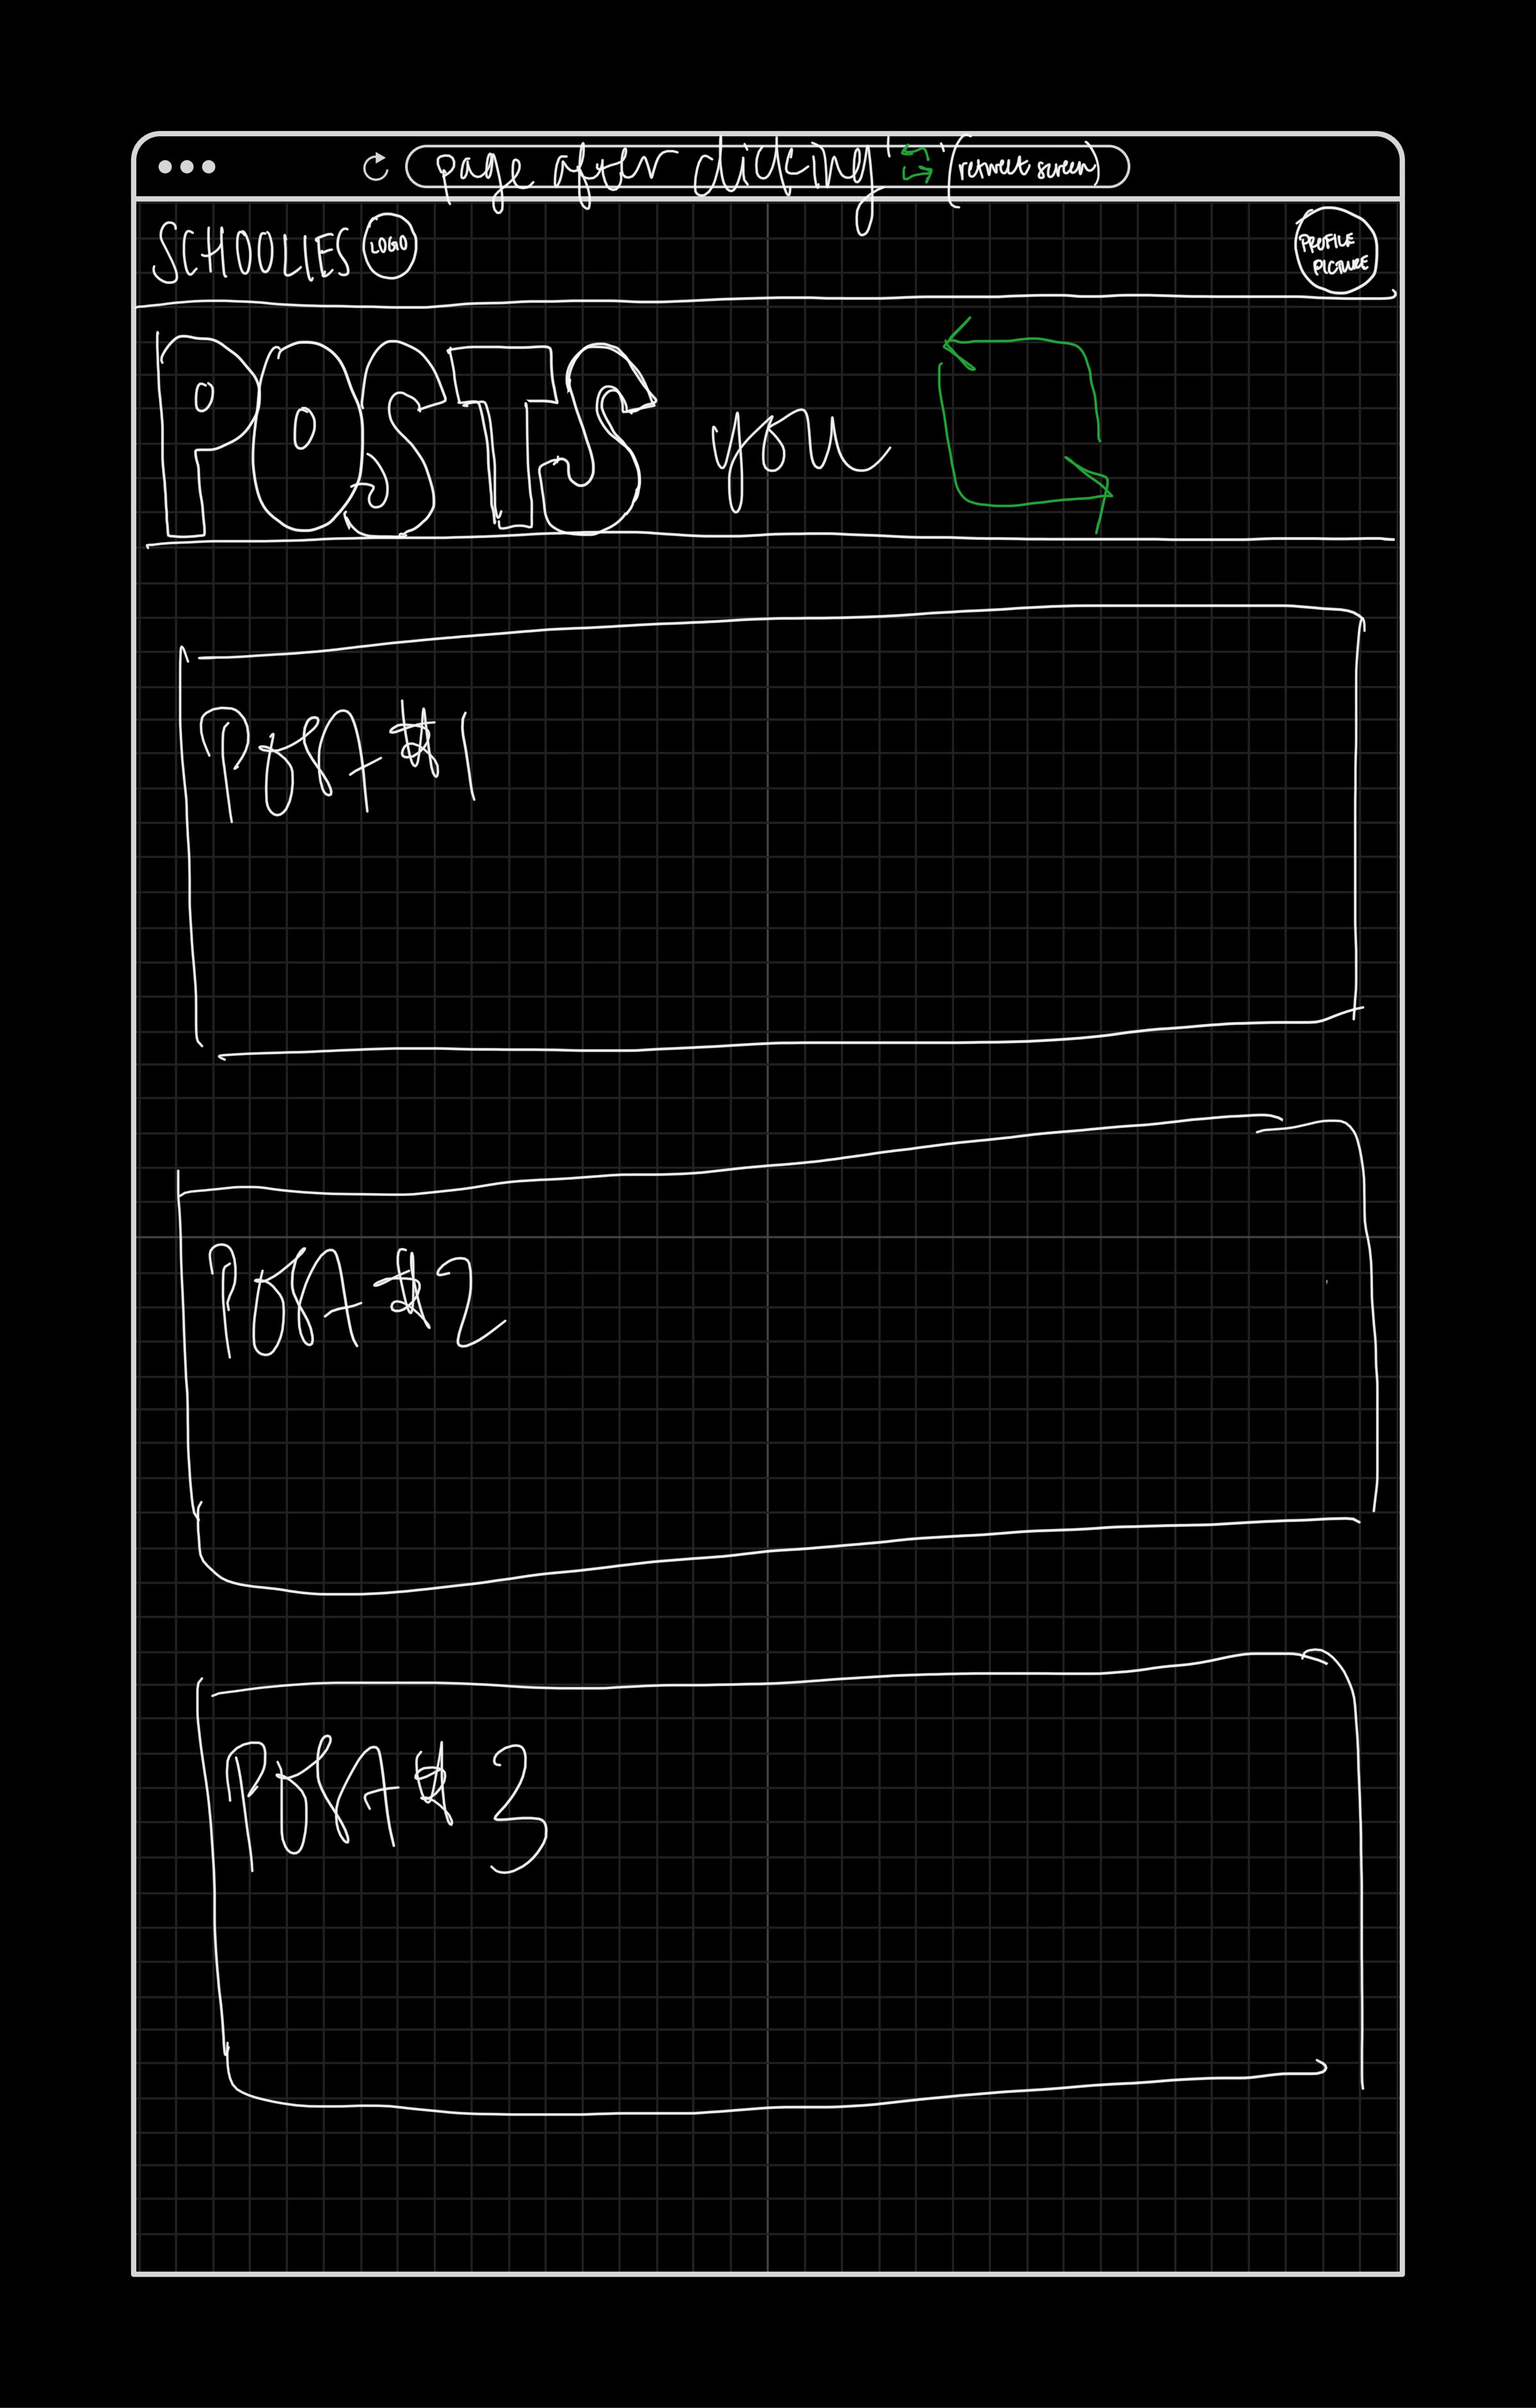 page after clicking " " (retweet screen)
SCHOOLIES LOGO
PROFILE
PICTURE
POSTS you
POST #1
POST #2
POST # 3